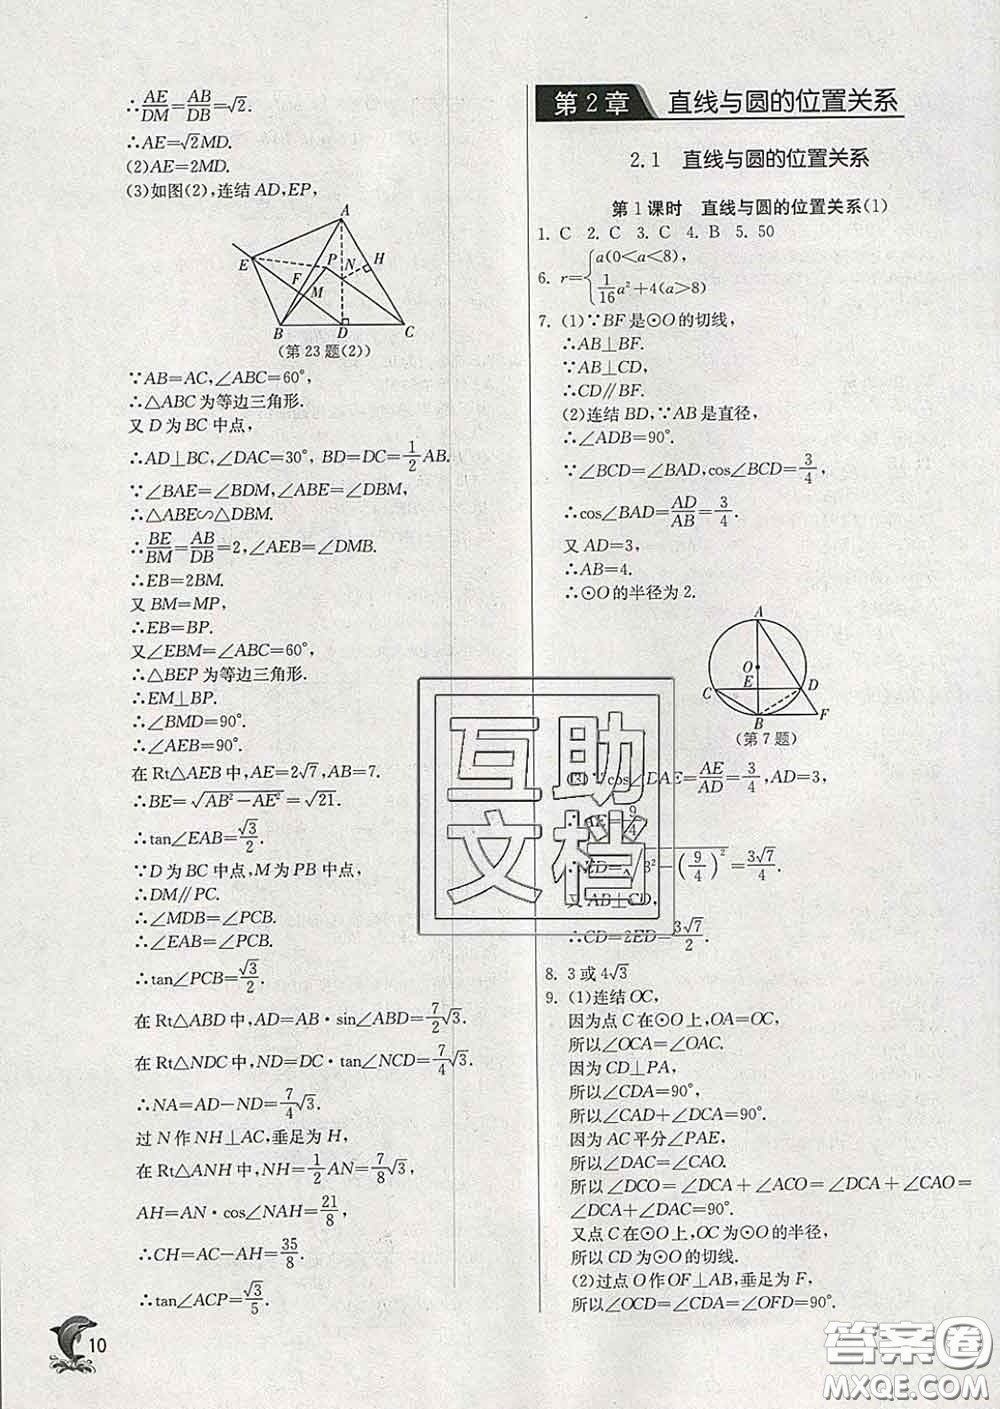 ∴AE/DM=AB/DB=√2.
∴AE=√2MD.
(2)AE=2MD.
(3)如图(2),连结AD,EP,
A
E
P
N
H
F
M
B
D
C
(第23题(2))
∵AB=AC,∠ABC=60°,
∴△ABC为等边三角形.
又D为BC中点,
∴AD⊥BC,∠DAC=30°, BD=DC=1/2AB.
∵∠BAE=∠BDM,∠ABE=∠DBM,
∴△ABE∽△DBM.
∴BE/BM=AB/DB=2,∠AEB=∠DMB.
∴EB=2BM.
又BM=MP,
∴EB=BP.
又∠EBM=∠ABC=60°,
∴△BEP为等边三角形.
∴EM⊥BP.
∴∠BMD=90°.
∴∠AEB=90°.
在Rt△AEB中,AE=2√7,AB=7.
∴BE=√(AB²-AE²)=√21.
∴tan∠EAB=√3/2.
∵D为BC中点,M为PB中点,
∴DM∥PC.
∴∠MDB=∠PCB.
∴∠EAB=∠PCB.
∴tan∠PCB=√3/2.
在Rt△ABD中,AD=AB·sin∠ABD=7/2√3.
在Rt△NDC中,ND=DC·tan∠NCD=7/4√3.
∴NA=AD-ND=7/4√3.
过N作NH⊥AC,垂足为H,
在Rt△ANH中,NH=1/2AN=7/8√3,
AH=AN·cos∠NAH=21/8,
∴CH=AC-AH=35/8.
∴tan∠ACP=√3/5.
10
第2章 直线与圆的位置关系
2.1 直线与圆的位置关系
第1课时 直线与圆的位置关系(1)
1. C 2. C 3. C 4. B 5. 50
6. r={a(0<a<8),
1/16a²+4(a>8)
7. (1)∵BF是⊙O的切线,
∴AB⊥BF.
∵AB⊥CD,
∴CD∥BF.
(2)连结BD,∵AB是直径,
∴∠ADB=90°.
∵∠BCD=∠BAD,cos∠BCD=3/4,
∴cos∠BAD=AD/AB=3/4.
又AD=3,
∴AB=4.
∴⊙O的半径为2.
A
O
E
C
D
B
F
(第7题)
(3)∵cos∠DAE=AE/AD=3/4,AD=3,
∴AE=9/4
∴ED=√(3²-(9/4)²)=3√7/4.
又AB⊥CD,
∴CD=2ED=3√7/2.
8. 3或4√3
9. (1)连结OC,
因为点C在⊙O上,OA=OC,
所以∠OCA=∠OAC.
因为CD⊥PA,
所以∠CDA=90°.
所以∠CAD+∠DCA=90°.
因为AC平分∠PAE,
所以∠DAC=∠CAO.
所以∠DCO=∠DCA+∠ACO=∠DCA+∠CAO=
∠DCA+∠DAC=90°.
又点C在⊙O上,OC为⊙O的半径,
所以CD为⊙O的切线.
(2)过点O作OF⊥AB,垂足为F,
所以∠OCD=∠CDA=∠OFD=90°.
互助
文档
答案圈
MXQE.COM